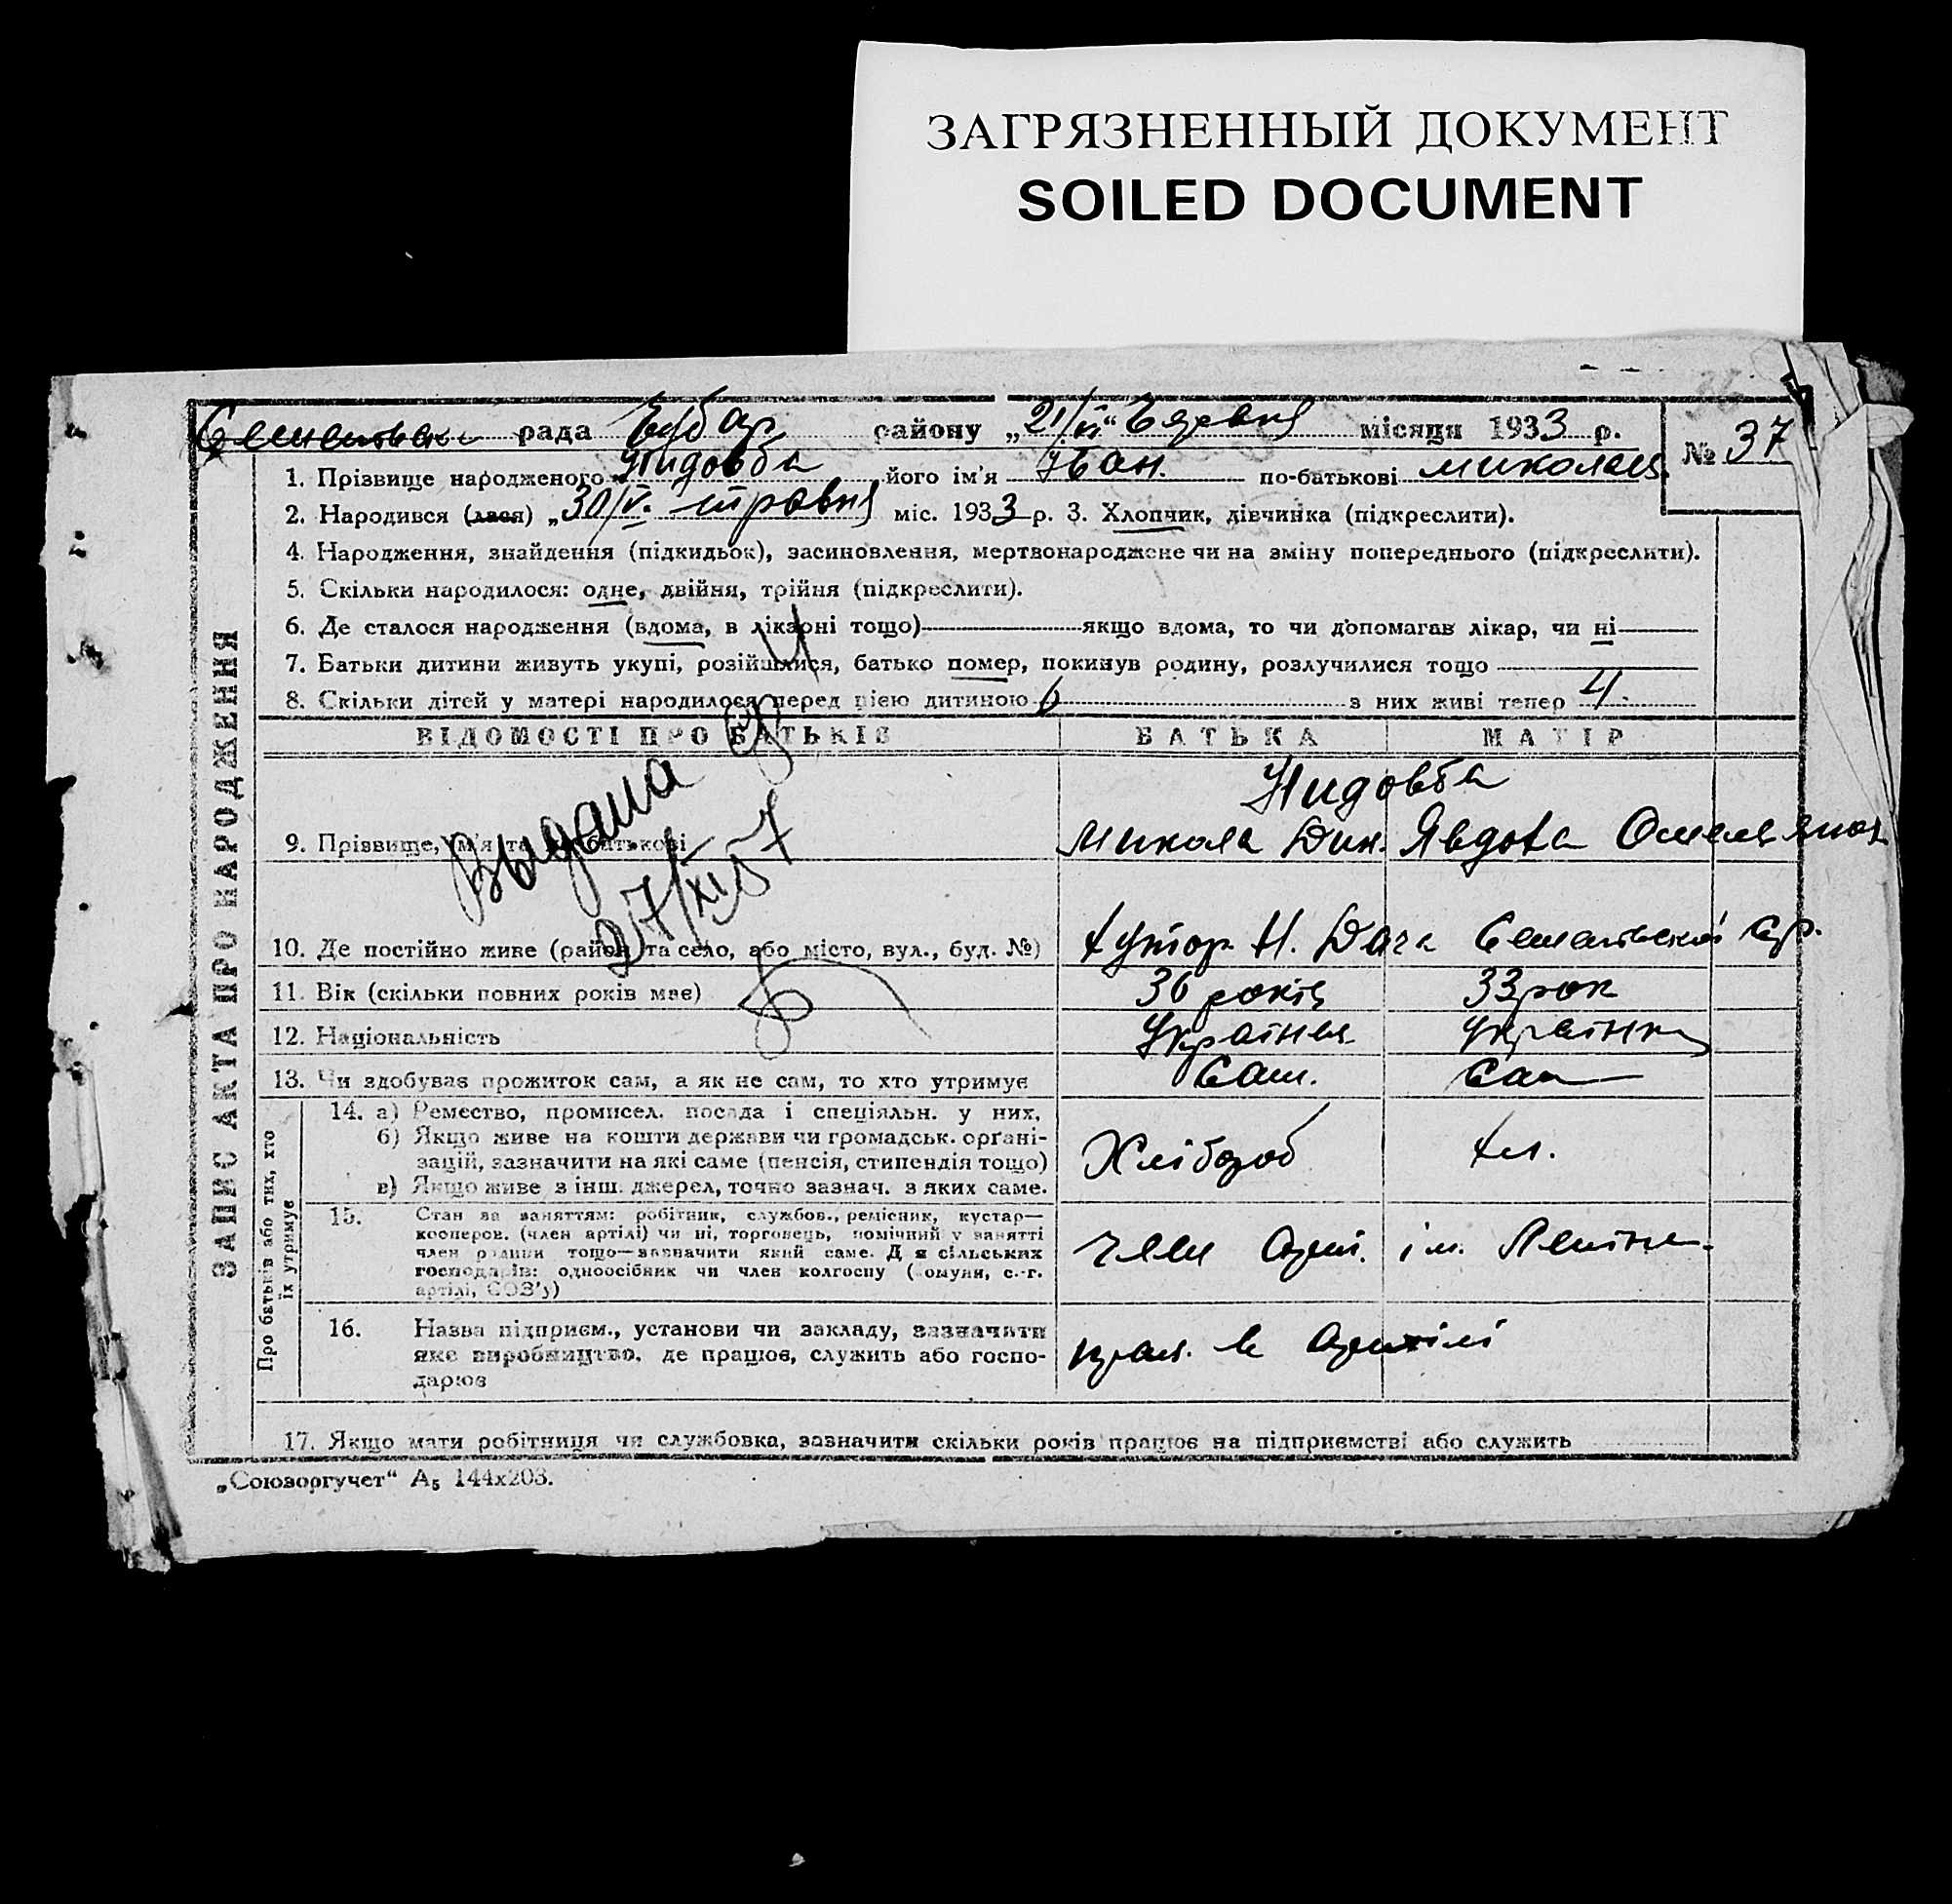 ЗАГРЯЗНЕННЫЙ ДОКУМЕНТ
SOILED DOCUMENT
рада району „21/VI“ Червня місяця 1933 р.
№ 37
1. Прізвище народженого його ім'я Іван. по-батькові Миколаїв.
2. Народився (лася) „30/V. травня міс. 1933 р. 3. Хлопчик, дівчинка (підкреслити).
4. Народження, знайдення (підкидьок), засиновлення, мертвонароджене чи на зміну попереднього (підкреслити).
5. Скільки народилося: одне, двійня, трійня (підкреслити).
6. Де сталося народження (вдома, в лікарні тощо) якщо вдома, то чи допомагав лікар, чи ні
7. Батьки дитини живуть укупі, розійшлися, батько помер, покинув родину, розлучилися тощо
8. Скільки дітей у матері народилося перед цією дитиною 6 з них живі тепер 4.
ВІДОМОСТІ ПРО БАТЬКІВ БАТЬКА МАТІР
9. Прізвище, ім'я та по батькові Микола Явдоха
Выдана
27/XI 57
10. Де постійно живе (район та село, або місто, вул., буд. №) Хутор Н. Дача
11. Вік (скільки повних років має) 36 років 33 рок
12. Національність Українец Українка
13. Чи здобував прожиток сам, а як не сам, то хто утримує Сам. Сам
14. а) Ремество, промисел. посада і спеціяльн. у них,
б) Якщо живе на кошти держави чи громадськ. органі-
зацій, зазначити на які саме (пенсія, стипендія тощо)
в) Якщо живе з інш. джерел, точно зазнач. з яких саме.
Хлібороб Хл.
15. Стан за заняттям: робітник, службов., ремісник, кустар—
кооперов. (член артілі) чи ні, торговець, помічний у занятті
член родини тощо—зазначити який саме. Для сільських
господарів: одноосібник чи член колгоспу (комуни, с.-г.
артілі, СОЗ'у)
член Арт. ім. Леніна.
16. Назва підприєм., установи чи закладу, зазначити
яке виробництво, де працює, служить або госпо-
дарює
прац. в Артілі
17. Якщо мати робітниця чи службовка, зазначити скільки років працює на підприємстві або служить
ЗАПИС АКТА ПРО НАРОДЖЕННЯ
Про батьків або тих, хто
їх утримує
„Союзоргучет“ А₅ 144х203.